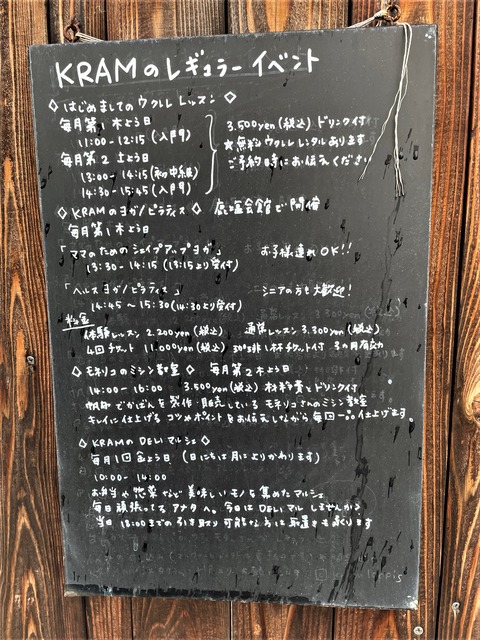 KRAMのレギュラーイベント
◇はじめましてのウクレレレッスン◇
毎月第1木よう日
11:00-12:15(入門)
毎月第2土よう日
13:00-14:15(初中級)
14:30-15:45(入門)
3.500yen(税込)ドリンク付
★無料ウクレレレンタルあります
ご予約時にお伝えください
◇KRAMのヨガ/ピラティス◇ 鹿塩会館で開催
毎月第1木よう日
「ママのためのシェイプアップヨガ」 お子様連れOK!!
13:30-14:15(13:15より受付)
「ヘルスヨガ/ピラティス」 シニアの方も大歓迎!
14:45～15:30(14:30より受付)
料金
体験レッスン 2.200yen(税込) 通常レッスン 3.300yen(税込)
4回チケット 11.000yen(税込) 3ヶ月有効
◇モネリコのミシン教室◇ 毎月第2木よう日
14:00-16:00 3.500yen(税込)材料費とドリンク付
帆布でかばんを製作・販売しているモネリコさんのミシン教室
キレイに仕上げるコツやポイントをお伝えしながら毎回一品仕上げます。
◇KRAMのDELiマルシェ◇
毎月1回金よう日(日にちは月によりかわります)
10:00-14:00
お弁当や惣菜など美味しいモノを集めたマルシェ
毎日頑張ってるアナタへ。今日はDELiマルしませんか?
当日18:00までの引き取り可能な方はお取置きも承ります